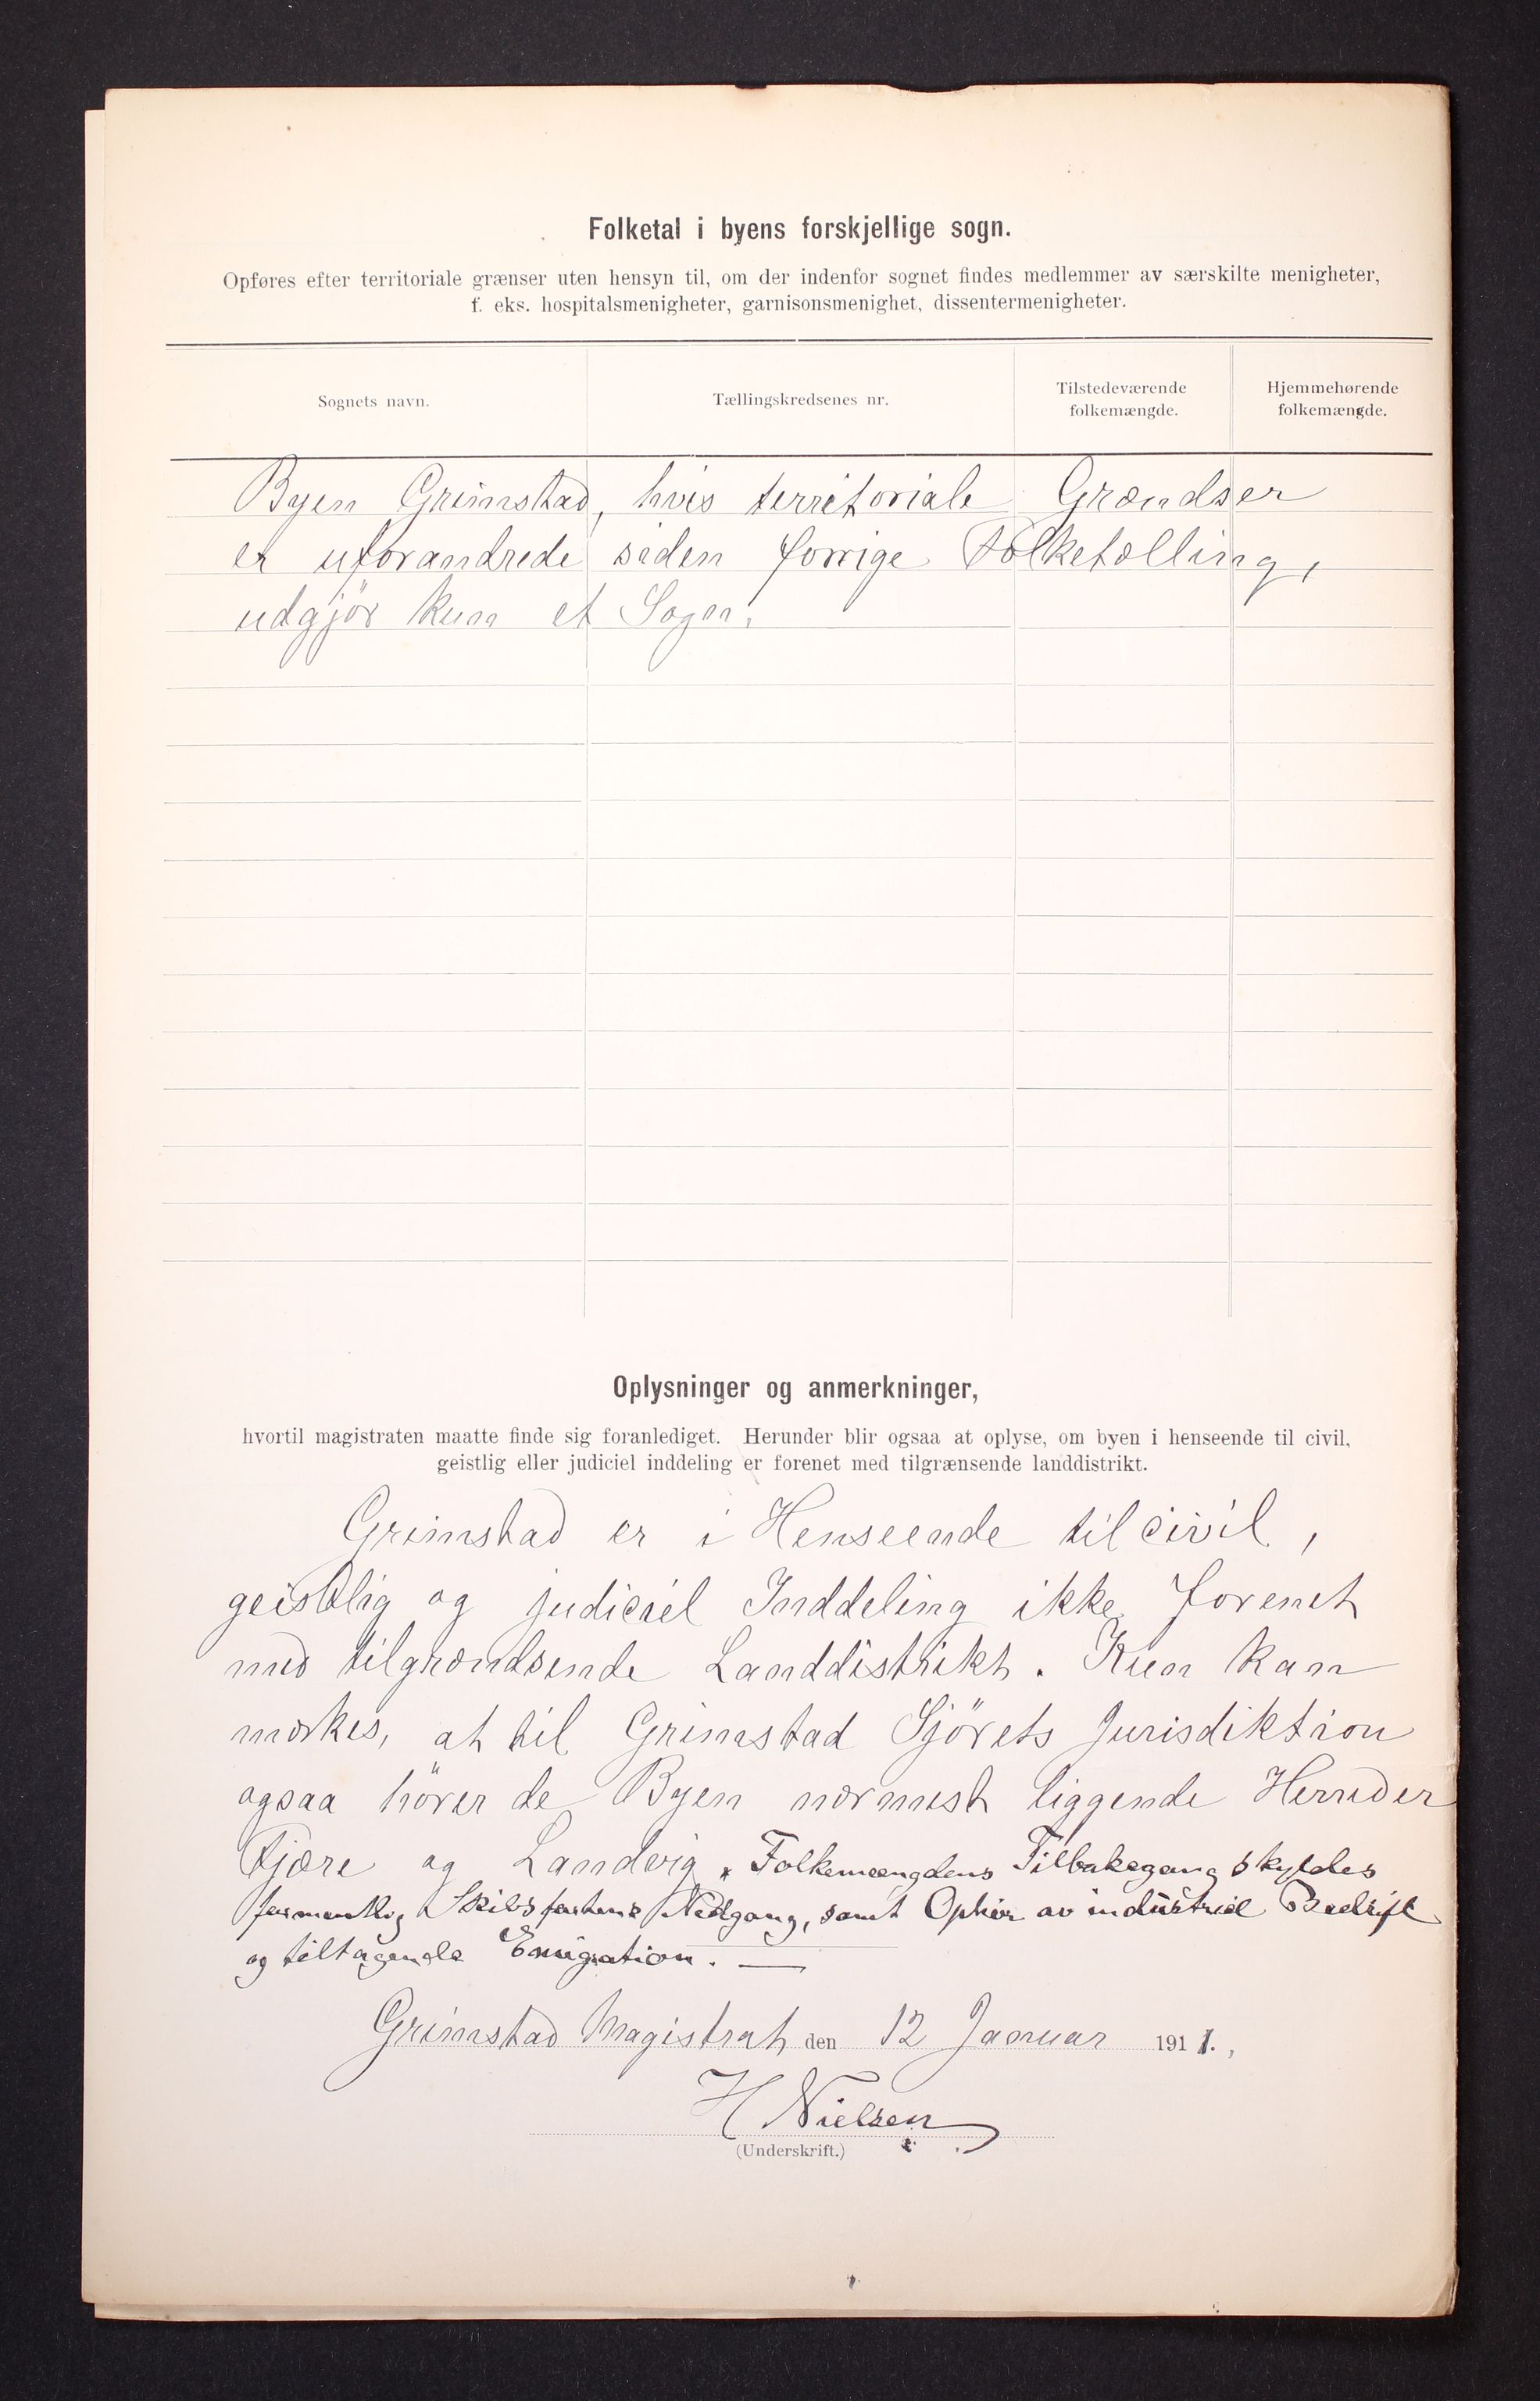 Folketal i byens forskjellige sogn.
Opføres efter territoriale grænser uten hensyn til, om der indenfor sognet findes medlemmer av særskilte menigheter,
f. eks. hospitalsmenigheter, garnisonsmenighet, dissentermenigheter.
Sognets navn.
Tællingskredsenes nr.
Tilstedeværende
folkemængde.
Hjemmehørende
folkemængde.
Byen Grimstad, hvis territoriale Grændser
er uforandrede siden forrige Folketælling,
udgjør kun et Sogn.
Oplysninger og anmerkninger,
hvortil magistraten maatte finde sig foranlediget. Herunder blir ogsaa at oplyse, om byen i henseende til civil,
geistlig eller judiciel inddeling er forenet med tilgrænsende landdistrikt.
Grimstad er i Henseende til civil,
geistlig og judiciel Inddeling ikke forenet
med tilgrændsende Landdistrikt. Kun kan
mærkes, at til Grimstad Sjörets Jurisdiktion
ogsaa hörer de Byen nærmest liggende Herreder
Fjære og Landvig. Folkemængdens Tilbakegang skyldes
formentlig Skibsfartens Nedgang, samt Ophör av industriel Bedrift
og tiltagende Emigration. —
Grimstad Magistrat den 12 Januar 1911.
H Nielsen
(Underskrift.)